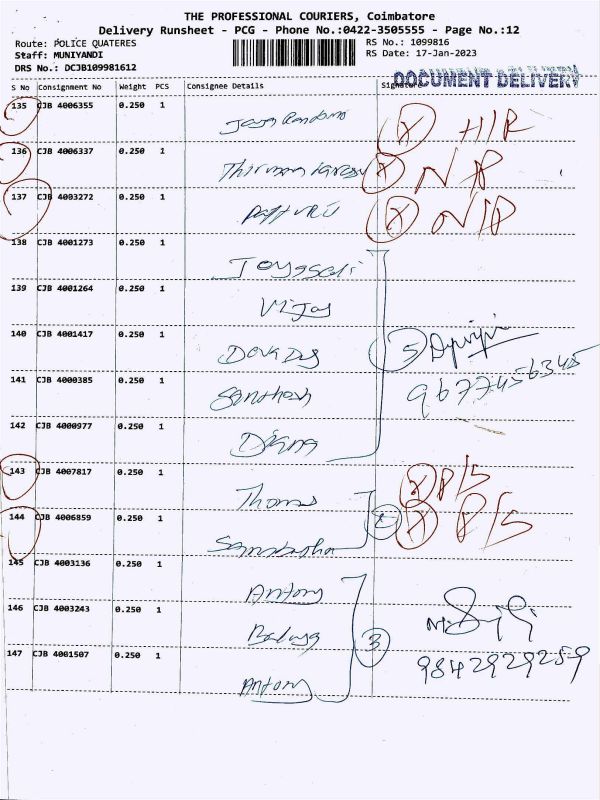 THE PROFESSIONAL COURIERS, Coimbatore
Delivery Runsheet - PCG - Phone No.:0422-3505555 - Page No.:12
Route: POLICE QUATERES RS No.: 1099816
Staff: MUNIYANDI RS Date: 17-Jan-2023
DRS No.: DCJB109981612 DOCUMENT DELIVERY
S No Consignment No Weight PCS Consignee Details Signature
135 CJB 4006355 0.250 1
136 CJB 4006337 0.250 1
137 CJB 4003272 0.250 1
138 CJB 4001273 0.250 1
139 CJB 4001264 0.250 1 Vijay
140 CJB 4001417 0.250 1 5
141 CJB 4000385 0.250 1 Santhosh
142 CJB 4000977 0.250 1 Diana
143 CJB 4007817 0.250 1 Thomas
144 CJB 4006859 0.250 1
145 CJB 4003136 0.250 1 Antony
146 CJB 4003243 0.250 1 3
147 CJB 4001507 0.250 1 9842929259
Antony